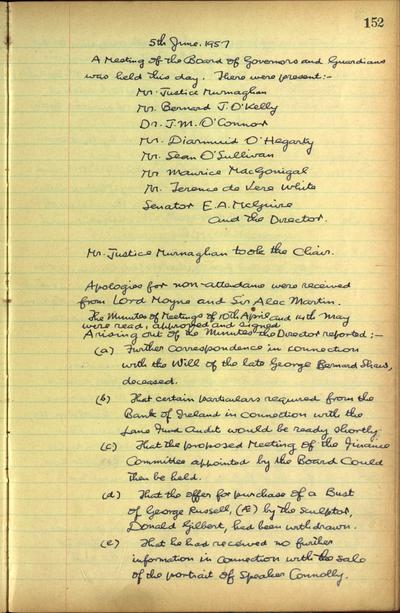 152
5th June, 1957
A Meeting of the Board of Governors and Guardians
was held this day. There were present:-
Mr. Justice Murnaghan
Mr. Bernard J. O'Kelly
Dr. J.M. O'Connor
Mr. Diarmuid O'Hegarty
Mr. Sean O'Sullivan
Mr Maurice MacGonigal
Mr. Terence de Vere White
Senator E.A. McGuire
and the Director.
Mr. Justice Murnaghan took the Chair.
Apologies for non-attendance were received
from Lord Moyne and Sir Alec Martin.
The Minutes of Meetings of 10th April and 14th May
were read, approved and signed.
Arising out of the Minutes the Director reported:-
(a) Further Correspondence in connection
with the Will of the late George Bernard Shaw,
deceased.
(b) That certain particulars required from the
Bank of Ireland in connection with the
Lane Fund Audit would be ready shortly.
(c) That the proposed Meeting of the Finance
Committee appointed by the Board Could
then be held.
(d) That the offer for purchase of a Bust
of George Russell, (Æ) by the sculptor,
Donald Gilbert, had been withdrawn.
(e) That he had received no further
information in connection with the sale
of the portrait of Speaker Connolly.